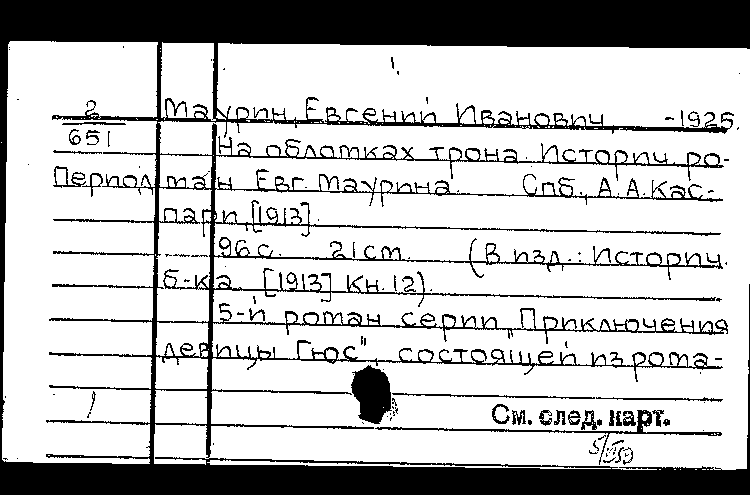 1.
2 Маурин, Евгений Иванович, -1925.
651 На обломках трона. Историч. ро-
Период ман Евг. Маурина. Спб., А. А. Кас-
пари, [1913].
96 с. 21 см. (В изд.: Историч.
б-ка. [1913] Кн. 12).
5-й роман серии "Приключения
девицы Гюс", состоящей из рома-
См. след. карт.